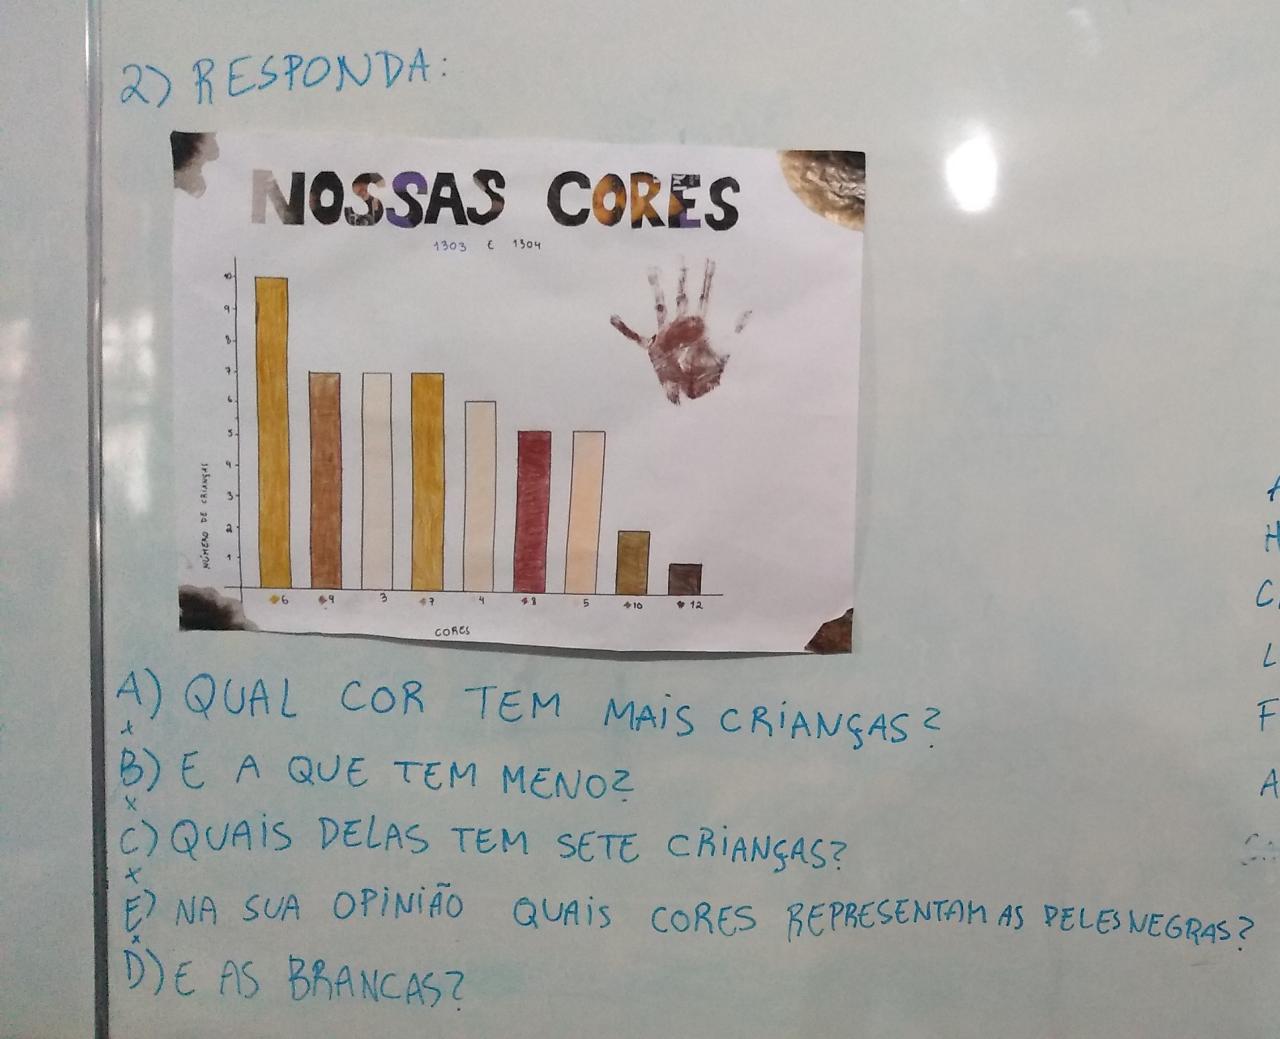 2) RESPONDA:
NOSSAS CORES
1303 E 1304
10
9
8
7
6
5
4
3
2
1
NÚMERO DE CRIANÇAS
6 9 3 7 4 8 5 10 12
CORES
A) QUAL COR TEM MAIS CRIANÇAS?
B) E A QUE TEM MENO?
C) QUAIS DELAS TEM SETE CRIANÇAS?
E) NA SUA OPINIÃO QUAIS CORES REPRESENTAM AS PELES NEGRAS?
D) E AS BRANCAS?
H
C
L
F
A